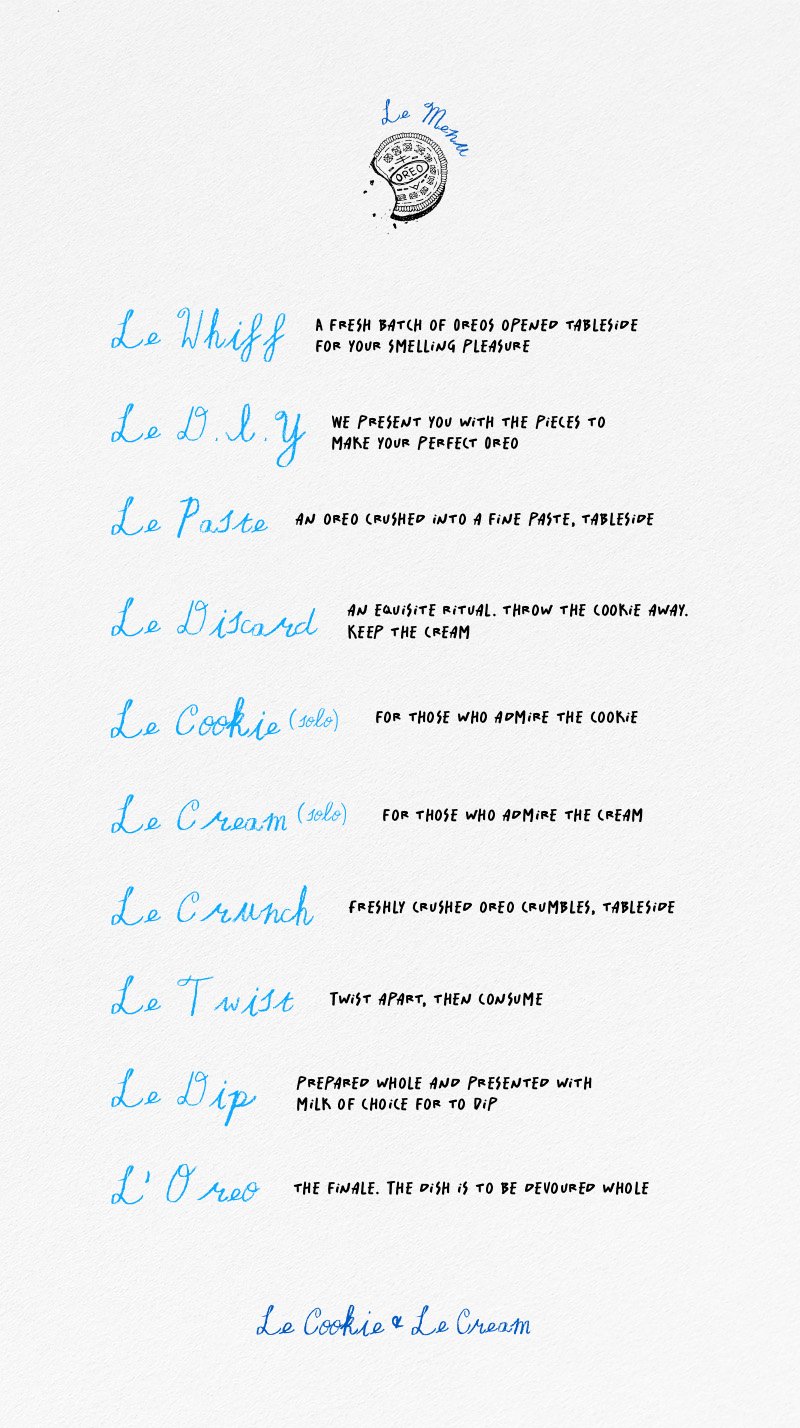 Le Menu
OREO
Le Whiff
A FRESH BATCH OF OREOS OPENED TABLESIDE
FOR YOUR SMELLING PLEASURE
Le D.I.Y
WE PRESENT YOU WITH THE PIECES TO
MAKE YOUR PERFECT OREO
Le Paste
AN OREO CRUSHED INTO A FINE PASTE, TABLESIDE
Le Discard
AN EQUISITE RITUAL. THROW THE COOKIE AWAY.
KEEP THE CREAM
Le Cookie (solo)
FOR THOSE WHO ADMIRE THE COOKIE
Le Cream (solo)
FOR THOSE WHO ADMIRE THE CREAM
Le Crunch
FRESHLY CRUSHED OREO CRUMBLES, TABLESIDE
Le Twist
TWIST APART, THEN CONSUME
Le Dip
PREPARED WHOLE AND PRESENTED WITH
MILK OF CHOICE FOR TO DIP
L'Oreo
THE FINALE. THE DISH IS TO BE DEVOURED WHOLE
Le Cookie & Le Cream